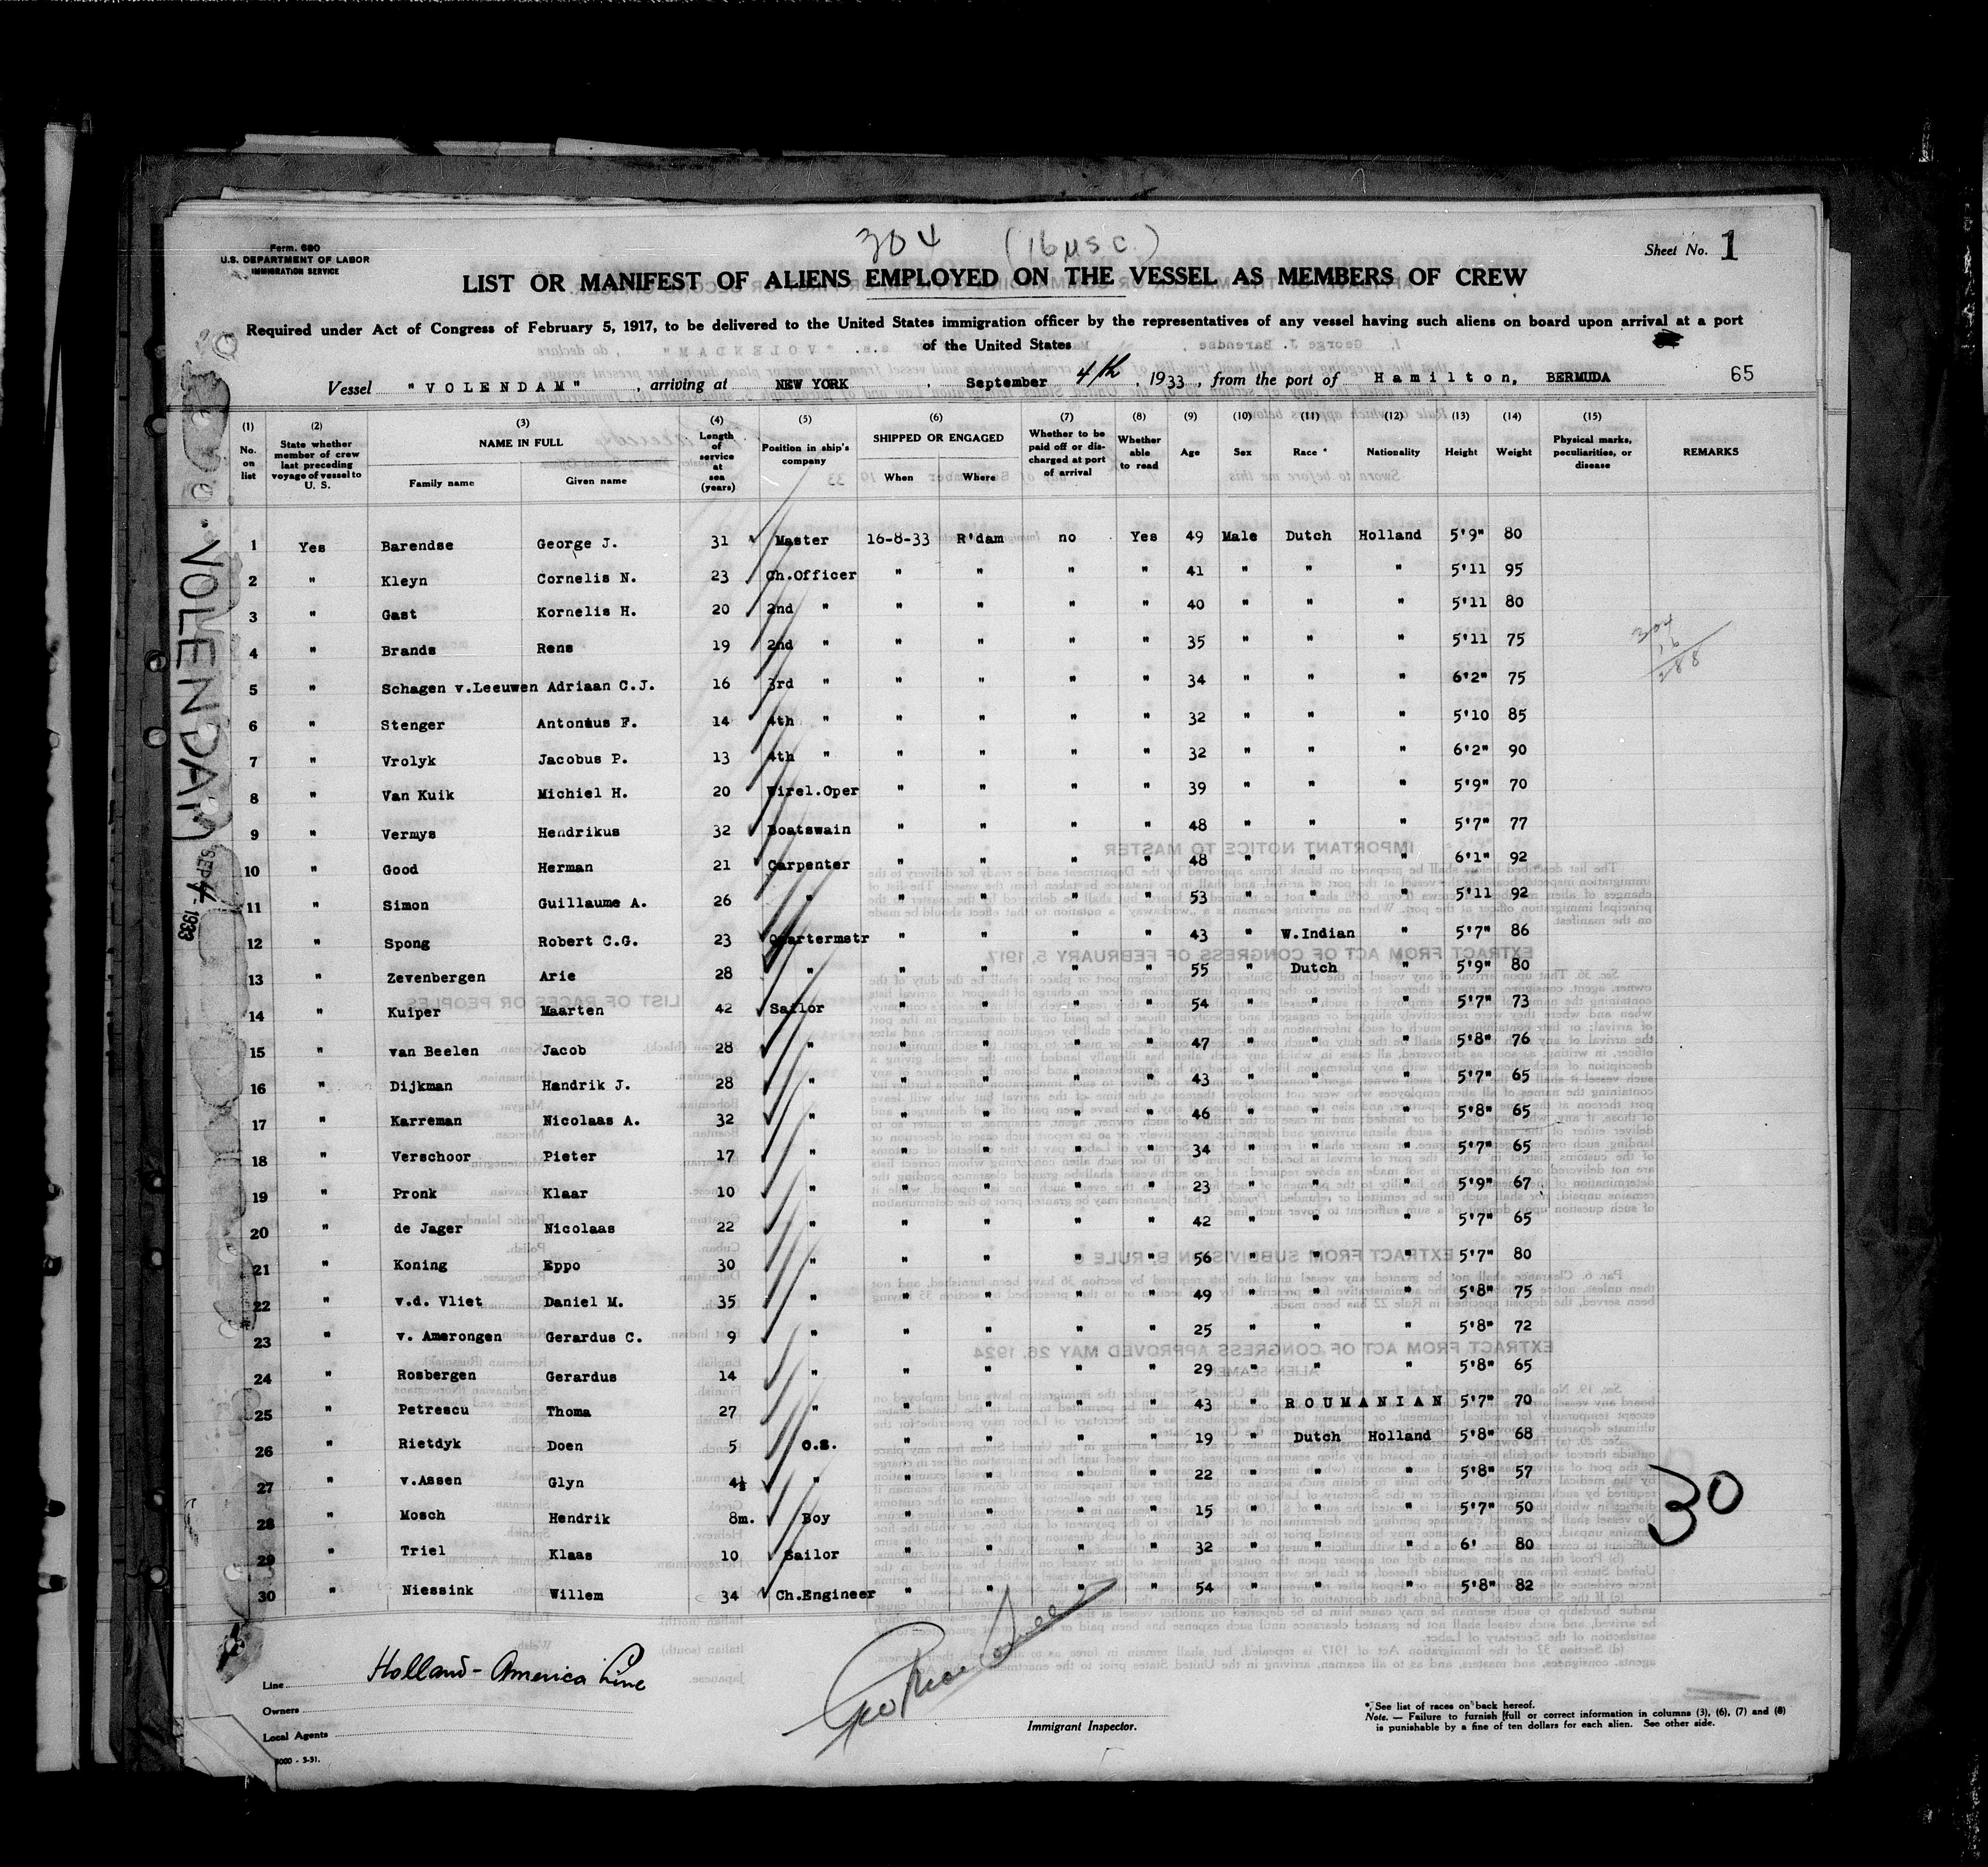 Form. 680
U.S. DEPARTMENT OF LABOR
IMMIGRATION SERVICE
304 (16 USC.)
Sheet No. 1
LIST OR MANIFEST OF ALIENS EMPLOYED ON THE VESSEL AS MEMBERS OF CREW
Required under Act of Congress of February 5, 1917, to be delivered to the United States immigration officer by the representatives of any vessel having such aliens on board upon arrival at a port
of the United States
Vessel "VOLENDAM" , arriving at NEW YORK , September 4th , 1933 , from the port of Hamilton, BERMUDA 65
(1) No. on list (2) State whether member of crew last preceding voyage of vessel to U. S. (3) NAME IN FULL Family name Given name (4) Length of service at sea (years) (5) Position in ship's company (6) SHIPPED OR ENGAGED When Where (7) Whether to be paid off or discharged at port of arrival (8) Whether able to read (9) Age (10) Sex (11) Race * (12) Nationality (13) Height (14) Weight (15) Physical marks, peculiarities, or disease REMARKS
1 Yes Barendse George J. 31 Master 16-8-33 R'dam no Yes 49 Male Dutch Holland 5'9" 80
2 " Kleyn Cornelis N. 23 Ch.Officer " " " " 41 " " " 5'11 95
3 " Gast Kornelis H. 20 2nd " " " " " 40 " " " 5'11 80
4 " Brands Rens 19 2nd " " " " " 35 " " " 5'11 75
5 " Schagen v.Leeuwen Adriaan C.J. 16 3rd " " " " " 34 " " " 6'2" 75
6 " Stenger Antonius F. 14 4th " " " " " 32 " " " 5'10 85
7 " Vrolyk Jacobus P. 13 4th " " " " " 32 " " " 6'2" 90
8 " Van Kuik Michiel H. 20 Wirel.Oper " " " " 39 " " " 5'9" 70
9 " Vermys Hendrikus 32 Boatswain " " " " 48 " " " 5'7" 77
10 " Good Herman 21 Carpenter " " " " 48 " " " 6'1" 92
11 " Simon Guillaume A. 26 " " " " " 53 " " " 5'11 92
12 " Spong Robert C.G. 23 Quartermstr " " " " 43 " W.Indian " 5'7" 86
13 " Zevenbergen Arie 28 " " " " " 55 " Dutch " 5'9" 80
14 " Kuiper Maarten 42 Sailor " " " " 54 " " " 5'7" 73
15 " van Beelen Jacob 28 " " " " " 47 " " " 5'8" 76
16 " Dijkman Handrik J. 28 " " " " " 43 " " " 5'7" 65
17 " Karreman Nicolaas A. 32 " " " " " 46 " " " 5'8" 65
18 " Verschoor Pieter 17 " " " " " 34 " " " 5'7" 65
19 " Pronk Klaar 10 " " " " " 23 " " " 5'9" 67
20 " de Jager Nicolaas 22 " " " " " 42 " " " 5'7" 65
21 " Koning Eppo 30 " " " " " 56 " " " 5'7" 80
22 " v.d. Vliet Daniel M. 35 " " " " " 49 " " " 5'8" 75
23 " v. Amerongen Gerardus C. 9 " " " " " 25 " " " 5'8" 72
24 " Rosbergen Gerardus 14 " " " " " 29 " " " 5'8" 65
25 " Petrescu Thoma 27 " " " " " 43 " ROUMANIAN 5'7" 70
26 " Rietdyk Doen 5 O.S. " " " " 19 " Dutch Holland 5'8" 68
27 " v.Assen Glyn 4½ " " " " " 22 " " " 5'8" 57
28 " Mosch Hendrik 8m. Boy " " " " 15 " " " 5'7" 50
29 " Triel Klaas 10 Sailor " " " " 32 " " " 6' 80
30 " Niessink Willem 34 Ch.Engineer " " " " 54 " " " 5'8" 82
304
16
288
30
VOLENDAM
SEP 4 1933
Line Holland-America Line
Owners
Local Agents
Immigrant Inspector.
* See list of races on back hereof.
Note. — Failure to furnish full or correct information in columns (3), (6), (7) and (8)
is punishable by a fine of ten dollars for each alien. See other side.